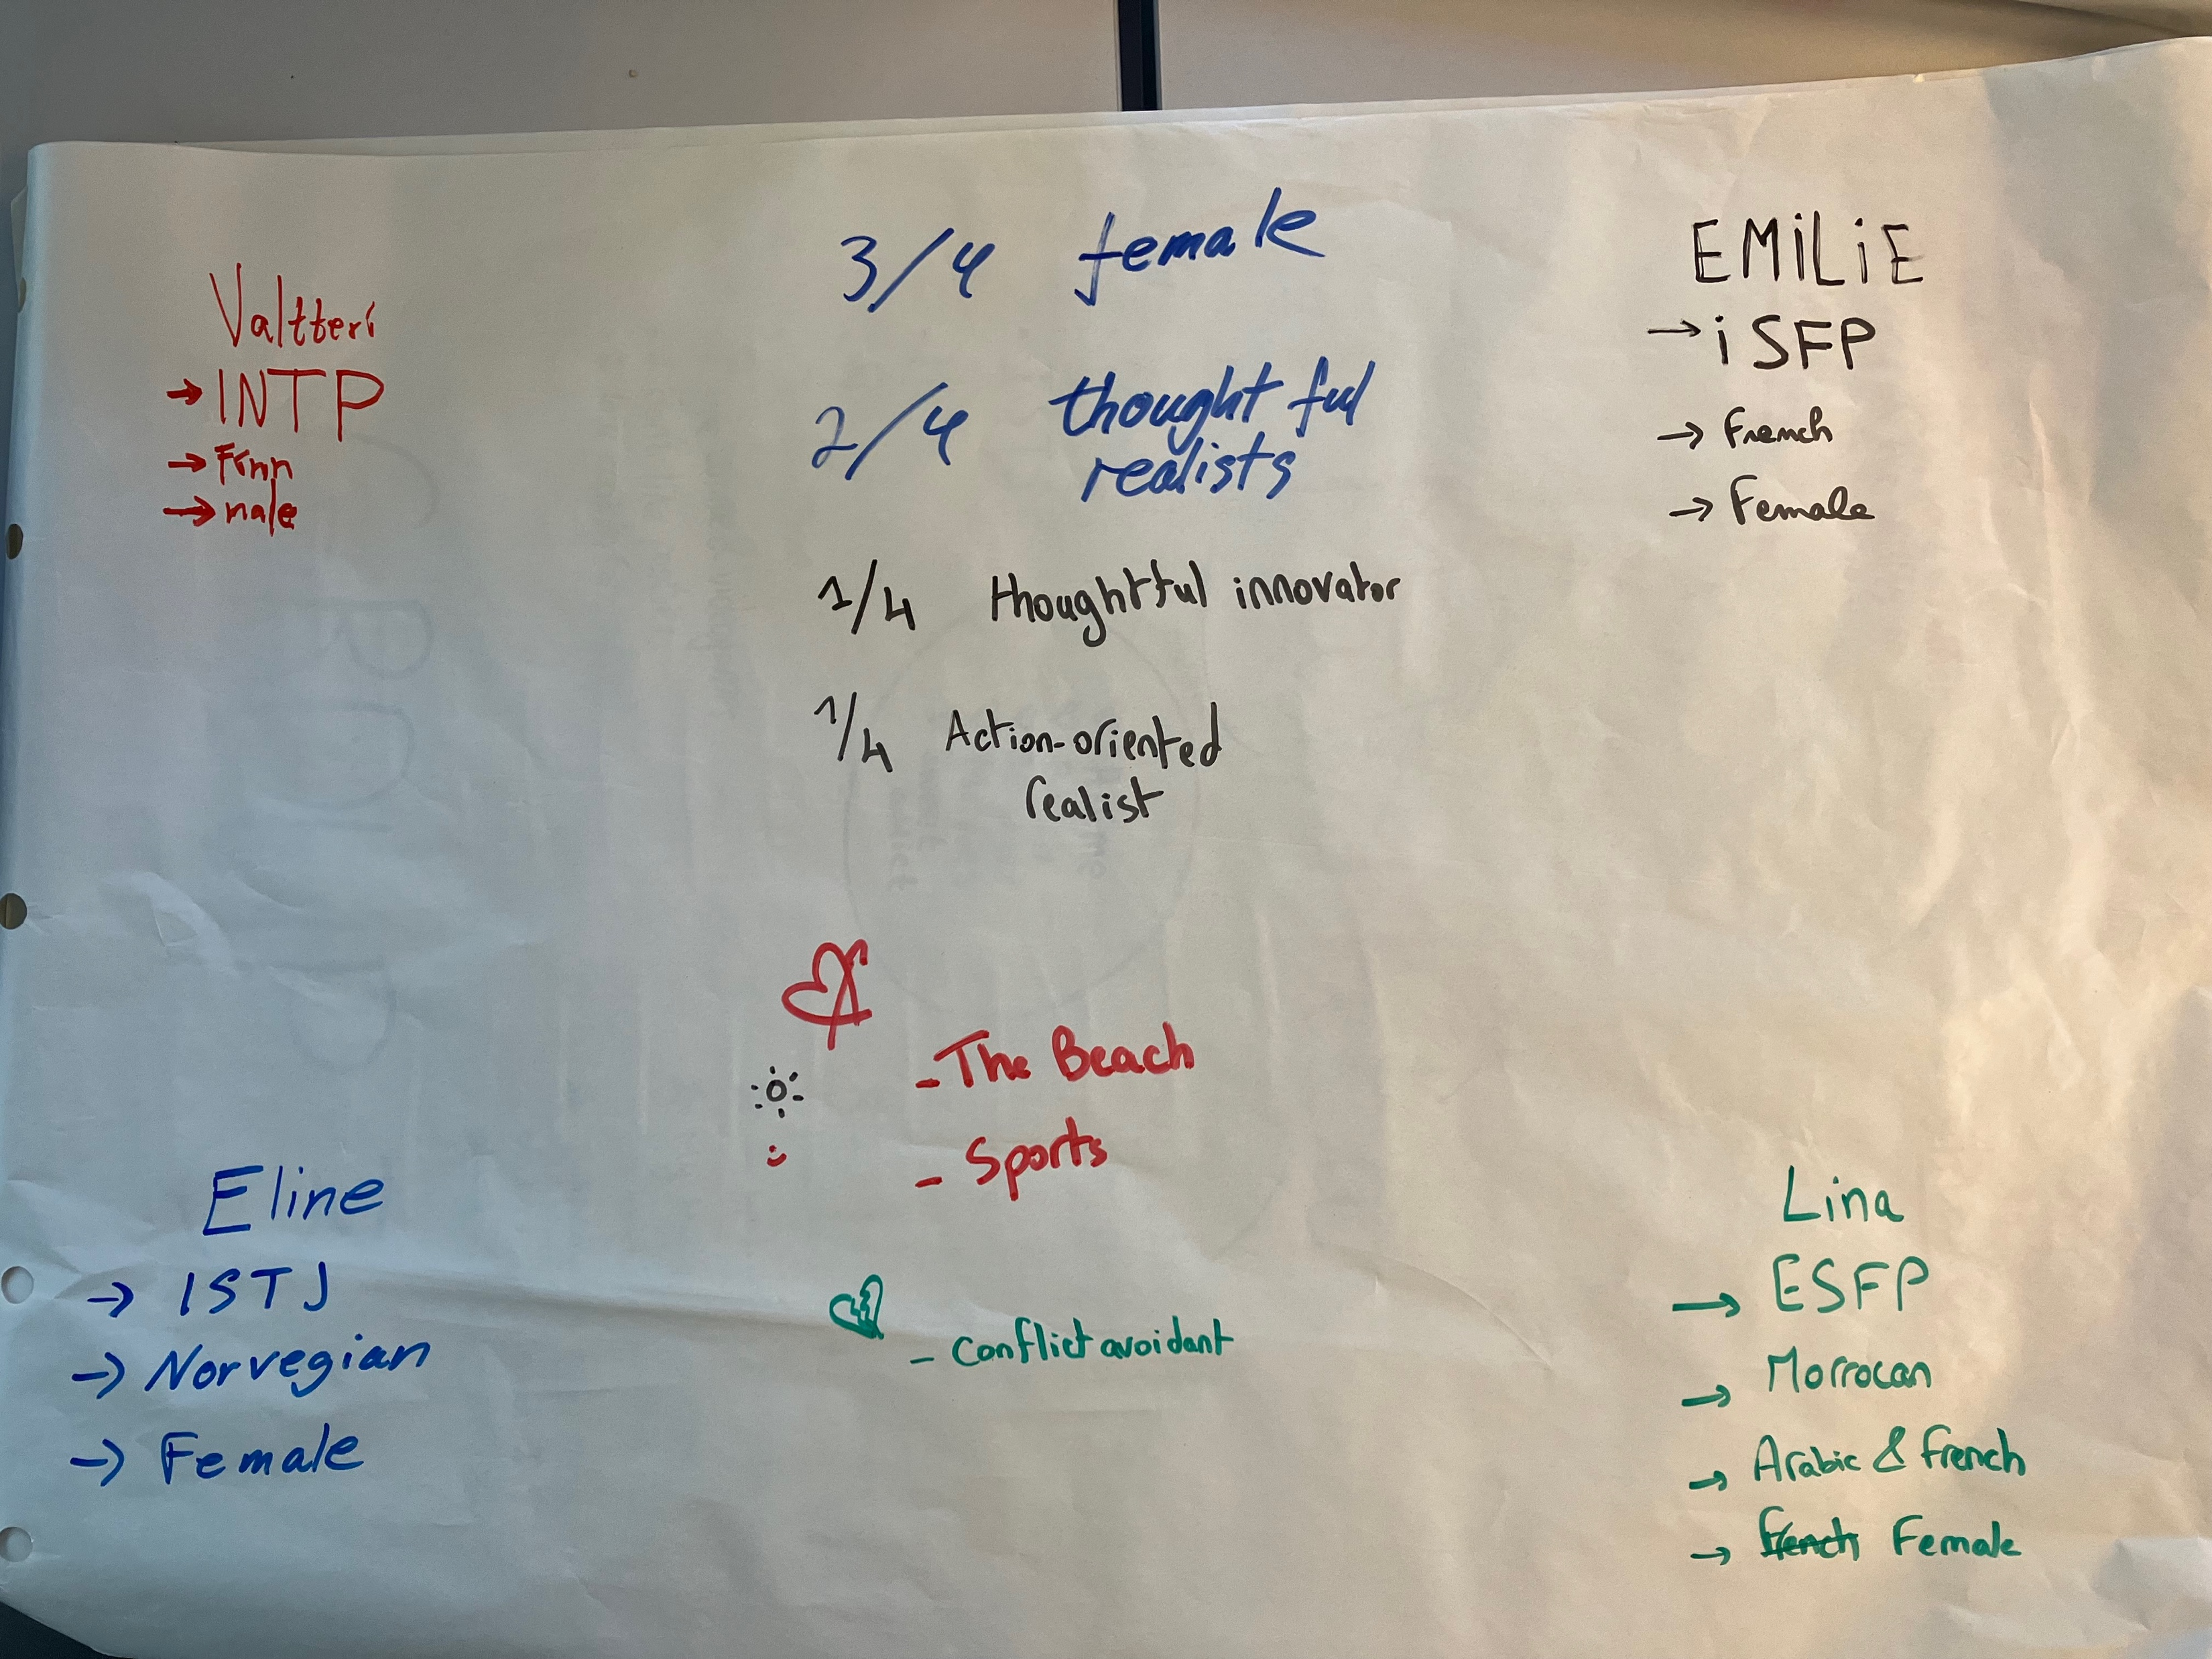 Valtteri
→ INTP
→ Finn
→ male
3/4 female
2/4 thoughtful
realists
1/4 thoughtful innovator
1/4 Action-oriented
realist
EMiLiE
→ iSFP
→ French
→ Female
- The Beach
- Sports
- Conflict avoidant
Eline
→ ISTJ
→ Norvegian
→ Female
Lina
→ ESFP
→ Morrocan
→ Arabic & French
→ French Female